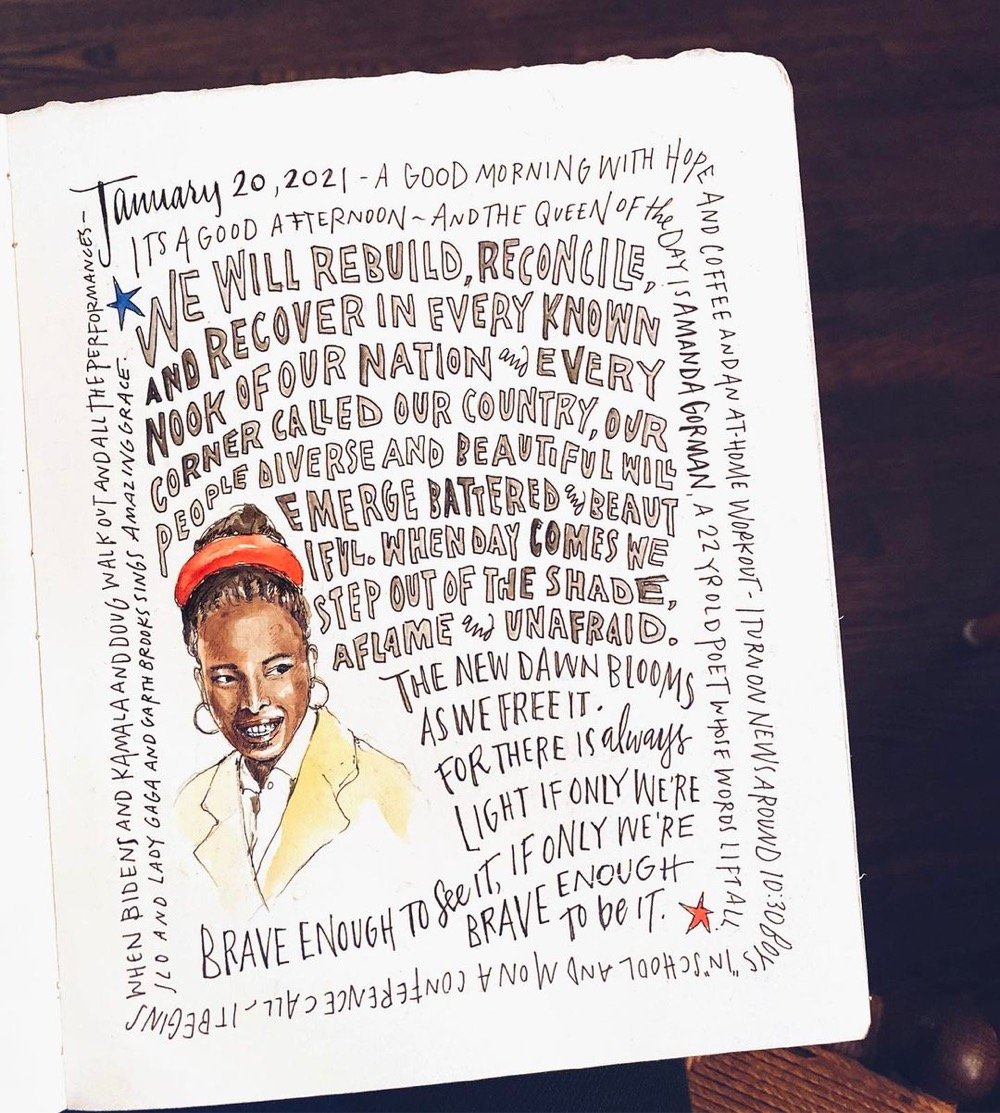 January 20, 2021 - A GOOD MORNING WITH HOPE
AND COFFEE AND AN AT-HOME WORKOUT - I TURN ON NEWS AROUND 10:30 BOYS
"IN" SCHOOL AND M ON A CONFERENCE CALL - IT BEGINS
WHEN BIDENS AND KAMALA AND DOUG WALK OUT AND ALL THE PERFORMANCES -
JLO AND LADY GAGA AND GARTH BROOKS SINGS AMAZING GRACE.
ITS A GOOD AFTERNOON ~ AND THE QUEEN OF the
DAY IS AMANDA GORMAN, A 22 YR OLD POET WHOSE WORDS LIFT ALL.
WE WILL REBUILD, RECONCILE,
AND RECOVER IN EVERY KNOWN
NOOK OF OUR NATION and EVERY
CORNER CALLED OUR COUNTRY, OUR
PEOPLE DIVERSE AND BEAUTIFUL WILL
EMERGE BATTERED and BEAUT
IFUL. WHEN DAY COMES WE
STEP OUT OF THE SHADE,
AFLAME and UNAFRAID.
THE NEW DAWN BLOOMS
AS WE FREE IT.
FOR THERE IS always
LIGHT IF ONLY WE'RE
BRAVE ENOUGH TO See IT, IF ONLY WE'RE
BRAVE ENOUGH
TO be IT.